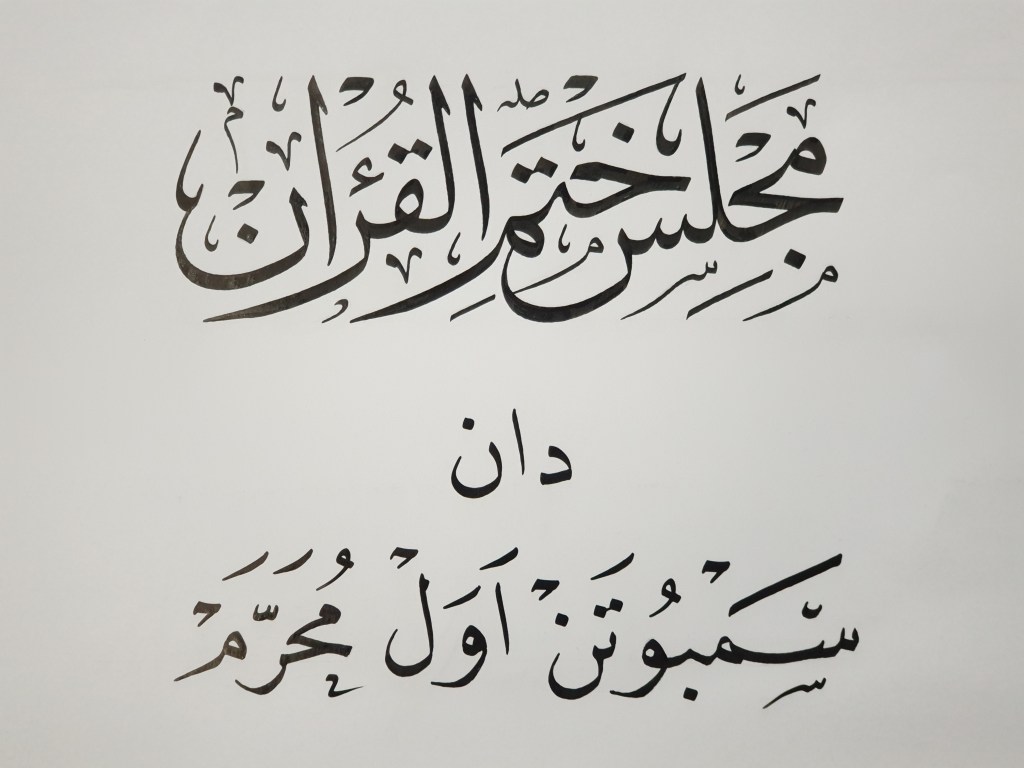 مَجْلِس خَتْمِ الْقُرْءَانْ
دان
سَمْبُوتَنْ اَوَلْ مُحَرَّمْ